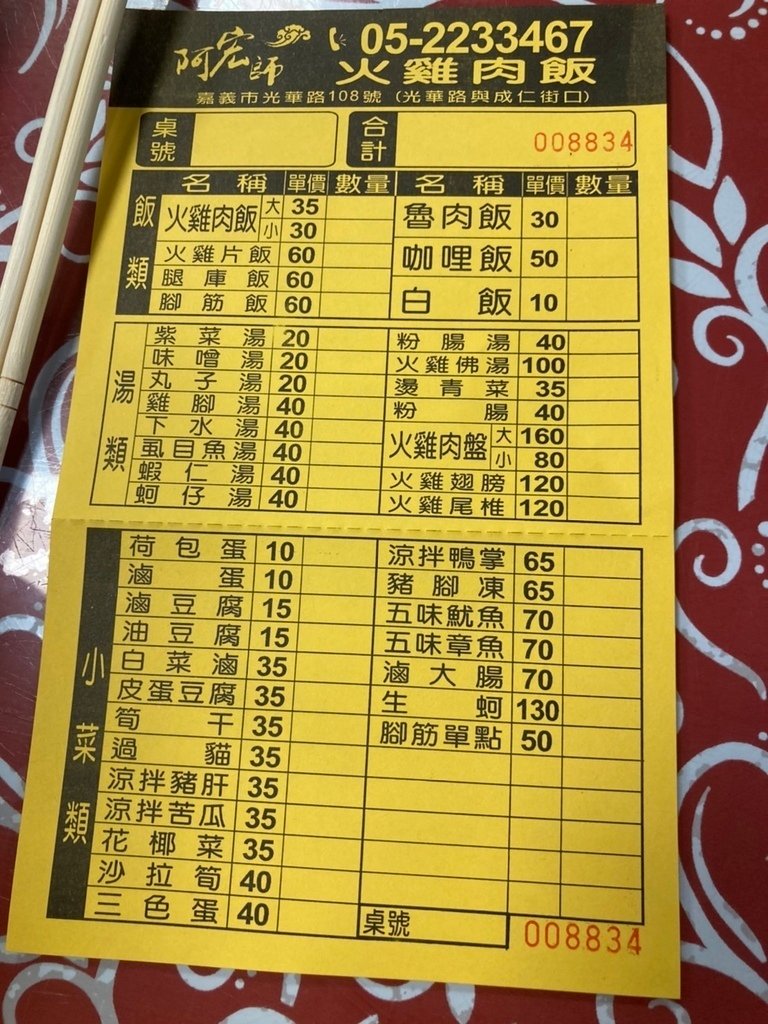 阿宏師 05-2233467
火雞肉飯
嘉義市光華路108號（光華路與成仁街口）
桌號 合計 008834
名稱 單價 數量 名稱 單價 數量
飯類
火雞肉飯 大 35 魯肉飯 30
小 30
火雞片飯 60 咖哩飯 50
腿庫飯 60
腳筋飯 60 白飯 10
湯類
紫菜湯 20 粉腸湯 40
味噌湯 20 火雞佛湯 100
丸子湯 20 燙青菜 35
雞腳湯 40 粉腸 40
下水湯 40 火雞肉盤 大 160
虱目魚湯 40 小 80
蝦仁湯 40 火雞翅膀 120
蚵仔湯 40 火雞尾椎 120
小菜類
荷包蛋 10 涼拌鴨掌 65
滷蛋 10 豬腳凍 65
滷豆腐 15 五味魷魚 70
油豆腐 15 五味章魚 70
白菜滷 35 滷大腸 70
皮蛋豆腐 35 生蚵 130
筍干 35 腳筋單點 50
過貓 35
涼拌豬肝 35
涼拌苦瓜 35
花椰菜 35
沙拉筍 40
三色蛋 40 桌號 008834